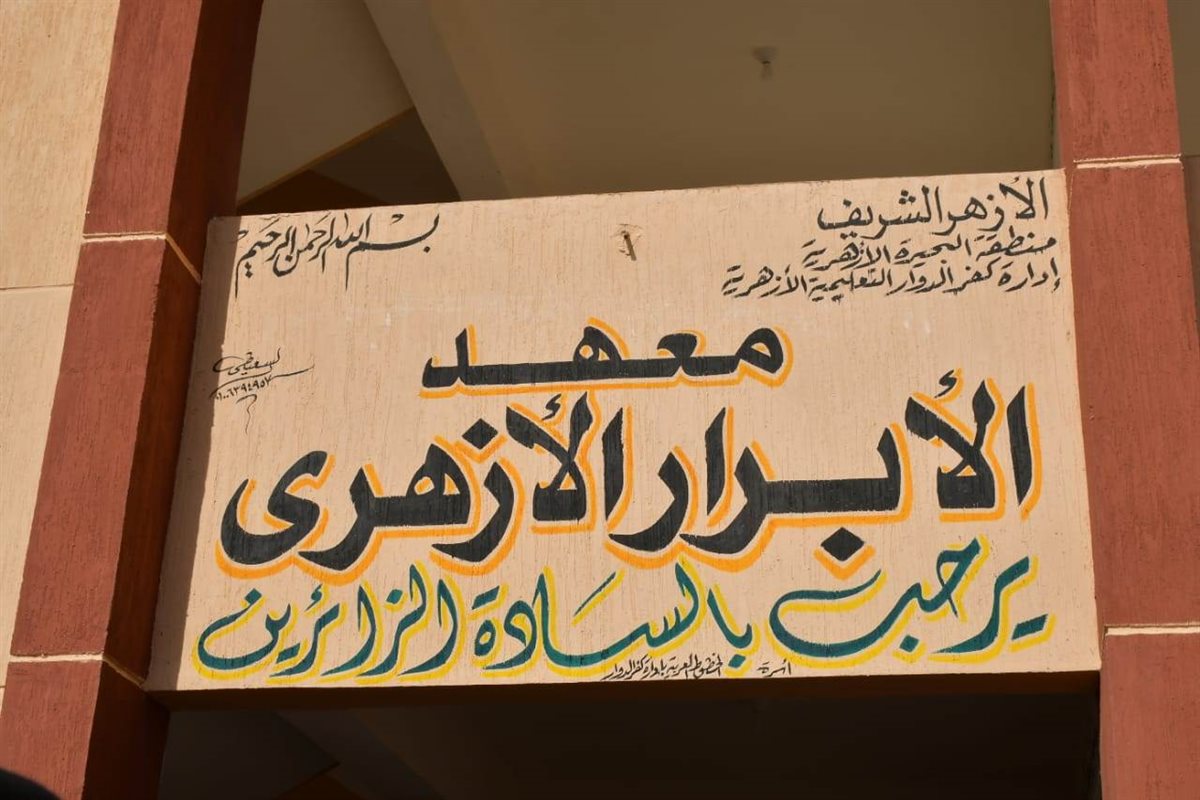 الأزهر الشريف
منطقة البحيرة الأزهرية
إدارة كفر الدوار التعليمية الأزهرية
بسم الله الرحمن الرحيم
معهد
الأبرار الأزهرى
يرحب بالسادة الزائرين
اسرة الخطوط العربية بادارة كفر الدوار